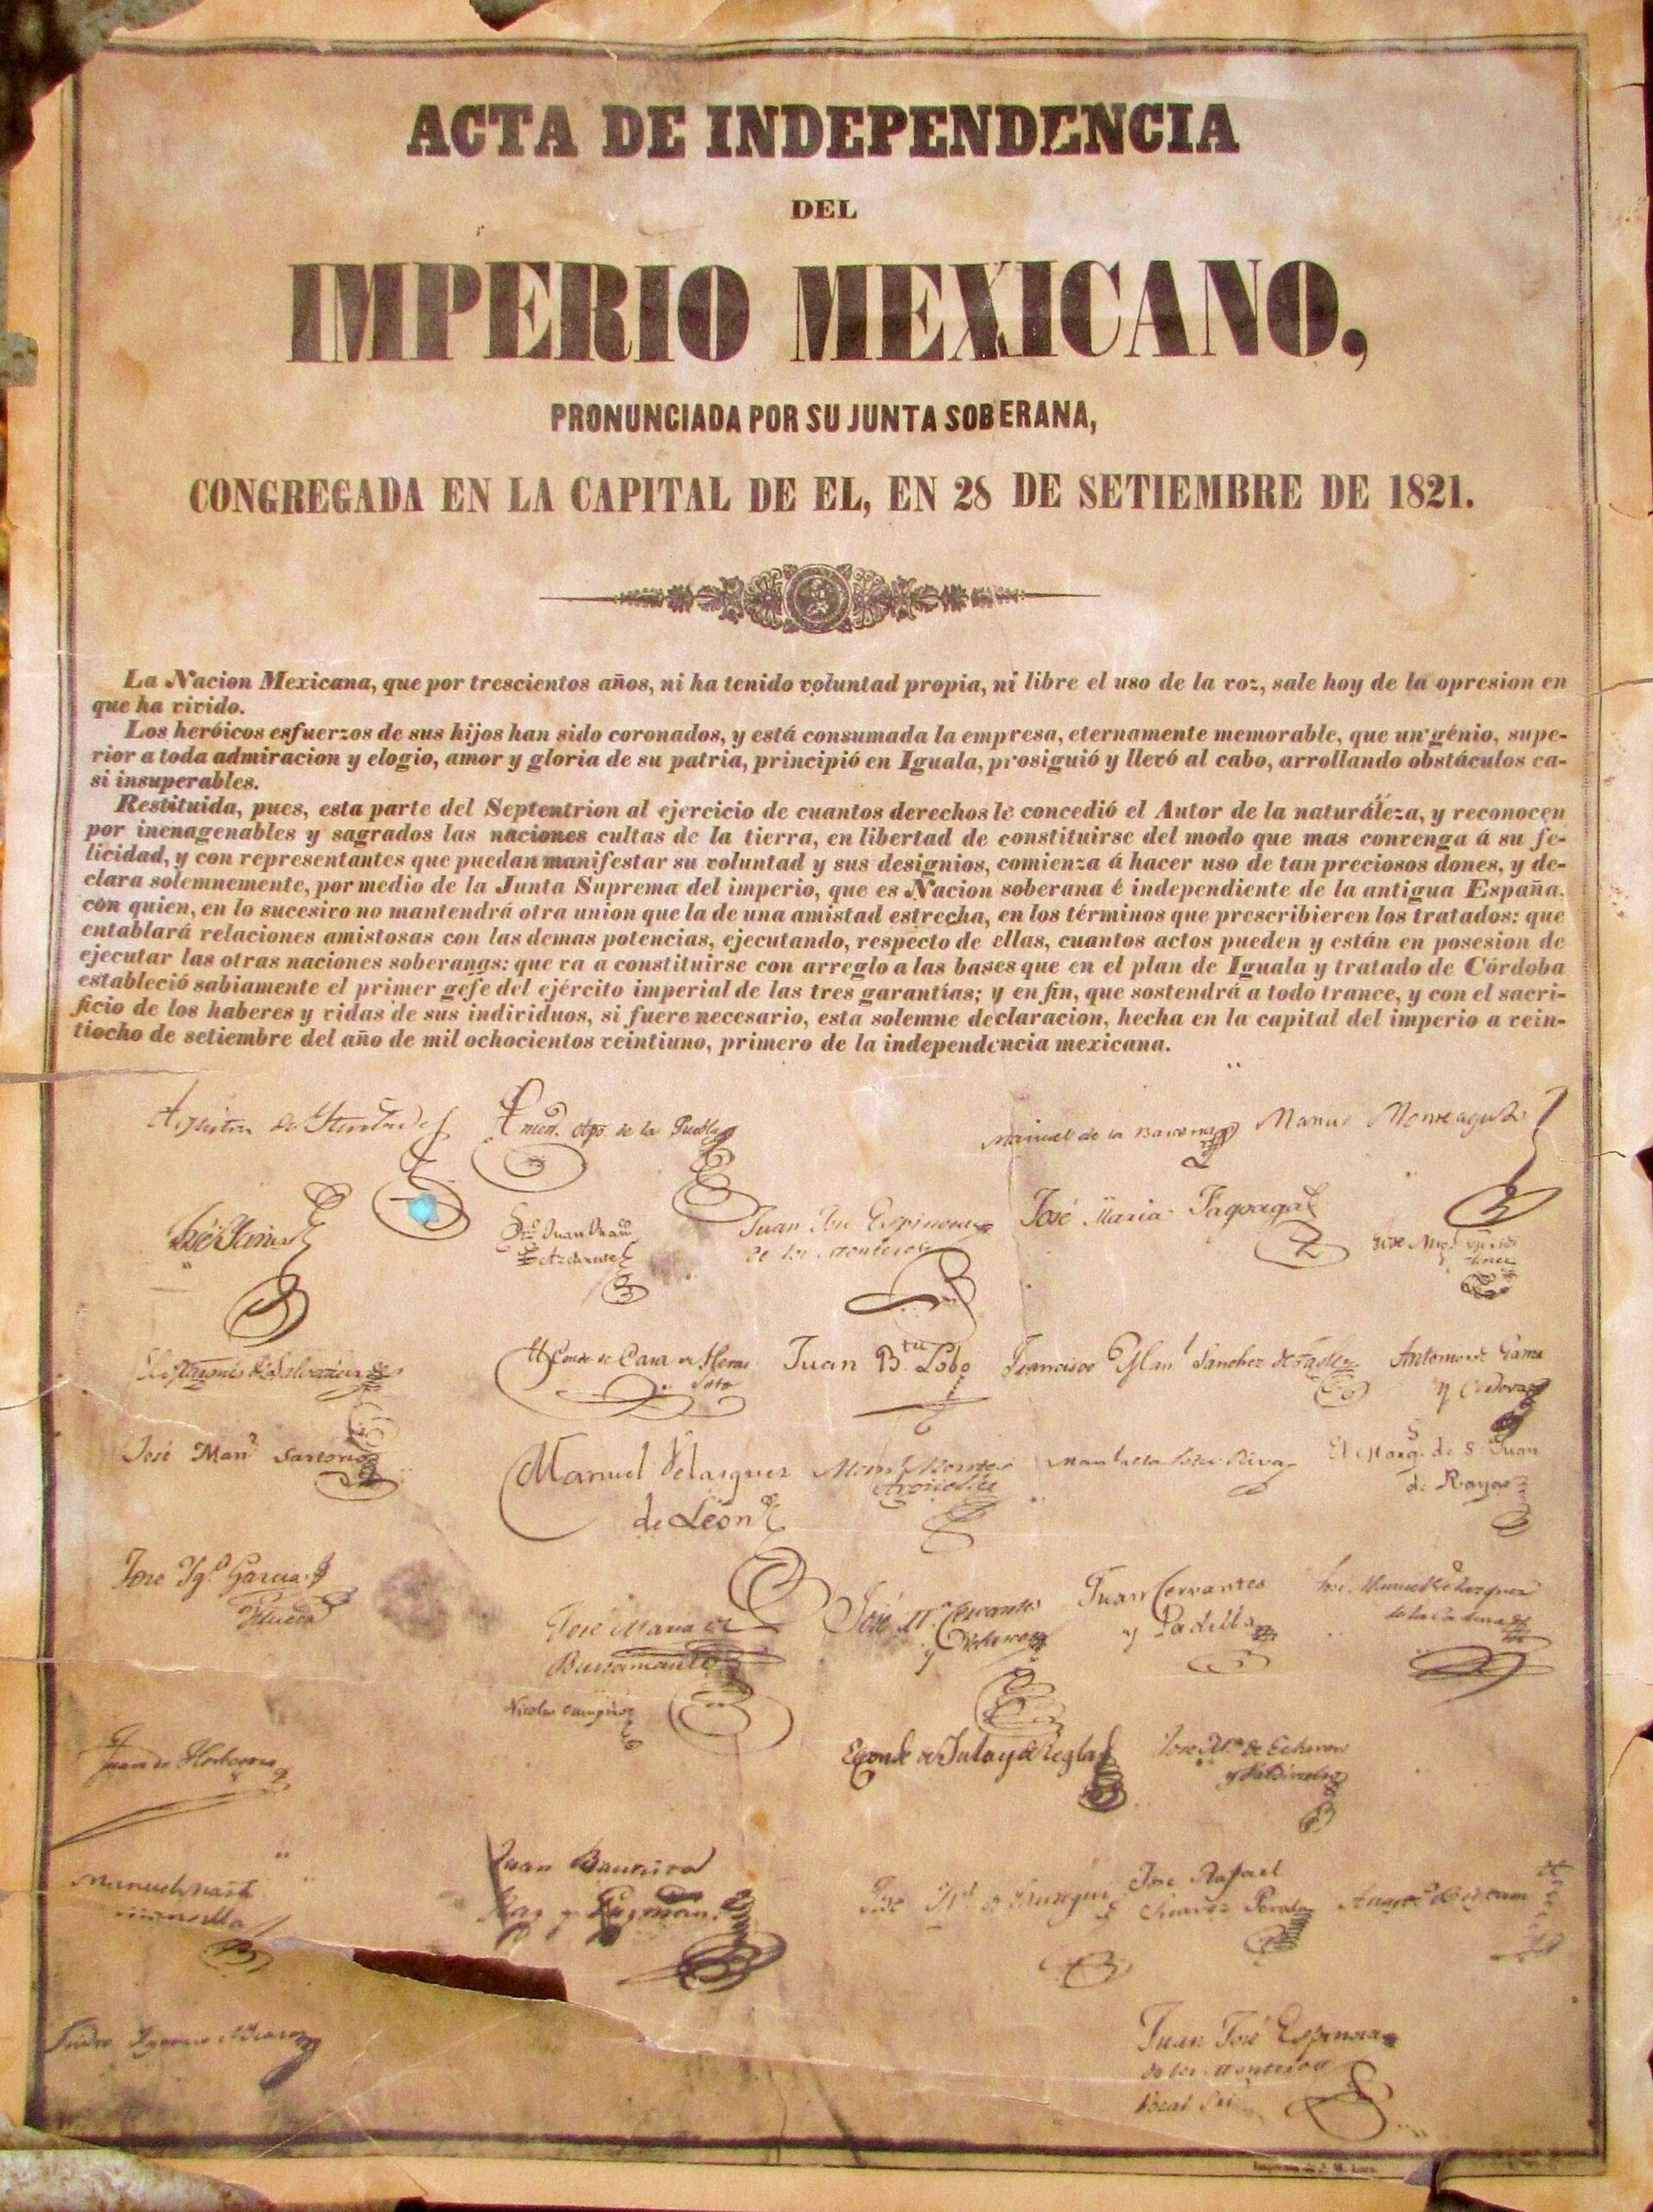 ACTA DE INDEPENDENCIA
DEL
IMPERIO MEXICANO,
PRONUNCIADA POR SU JUNTA SOBERANA,
CONGREGADA EN LA CAPITAL DE EL, EN 28 DE SETIEMBRE DE 1821.
La Nacion Mexicana, que por trescientos años, ni ha tenido voluntad propia, ni libre el uso de la voz, sale hoy de la opresion en
que ha vivido.
Los heróicos esfuerzos de sus hijos han sido coronados, y está consumada la empresa, eternamente memorable, que un génio, supe-
rior a toda admiracion y elogio, amor y gloria de su patria, principió en Iguala, prosiguió y llevó al cabo, arrollando obstáculos ca-
si insuperables.
Restituida, pues, esta parte del Septentrion al ejercicio de cuantos derechos le concedió el Autor de la naturaleza, y reconocen
por inenagenables y sagrados las naciones cultas de la tierra, en libertad de constituirse del modo que mas convenga á su fe-
licidad, y con representantes que puedan manifestar su voluntad y sus designios, comienza á hacer uso de tan preciosos dones, y de-
clara solemnemente, por medio de la Junta Suprema del imperio, que es Nacion soberana é independiente de la antigua España,
con quien, en lo sucesivo no mantendrá otra union que la de una amistad estrecha, en los términos que prescribieren los tratados: que
entablará relaciones amistosas con las demas potencias, ejecutando, respecto de ellas, cuantos actos pueden y están en posesion de
ejecutar las otras naciones soberanas: que va a constituirse con arreglo a las bases que en el plan de Iguala y tratado de Córdoba
estableció sabiamente el primer gefe del ejército imperial de las tres garantías; y en fin, que sostendrá a todo trance, y con el sacri-
ficio de los haberes y vidas de sus individuos, si fuere necesario, esta solemne declaracion, hecha en la capital del imperio a vein-
tiocho de setiembre del año de mil ochocientos veintiuno, primero de la independencia mexicana.
Agustin de Obpo. de la Puebla Manuel de la Barcena Manuel Monteagudo
Juan José Espinosa José Maria Fagoaga
de los Monteros
El Conde de Casa de Heras Juan Bta. Lobo Francisco Sanchez de Tagle Antonio de Gama
Soto y Cordova
José Man. Sartorio Manuel Velazquez El Marq. de S. Juan
de Leon de Rayas
Jose Garcia Juan Cervantes
José Maria de José Ma. Cervantes y Padilla
Bustamante y Velasco
Nicolas Campero
Juan de Horbegoso El Conde de Jala y de Regla Jose Ma. de Echevers
Juan Bautista Jose Rafael
Raz y Guzman Suarez Pereda
Juan José Espinosa
de los Monteros
Vocal